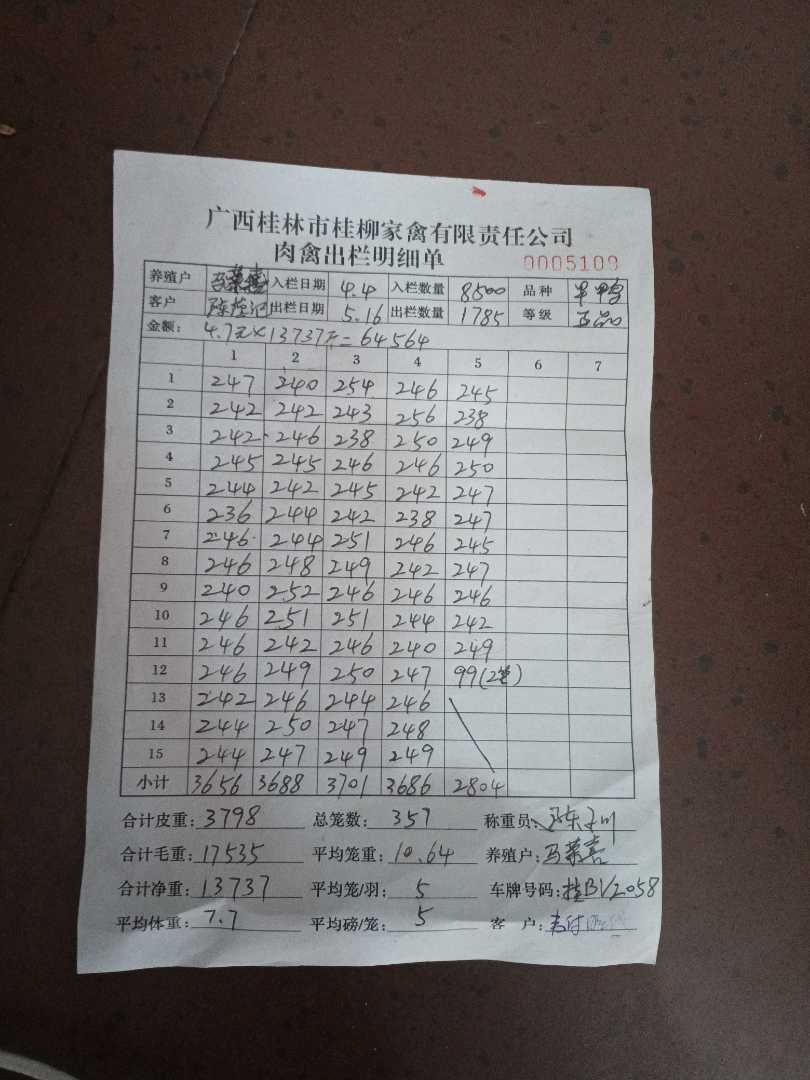 广西桂林市桂柳家禽有限责任公司
肉禽出栏明细单 0005109
养殖户 马荣喜 入栏日期 4.4 入栏数量 8500 品种 旱鸭
客户 出栏日期 5.16 出栏数量 1785 等级 正品
金额: 4.7元×13737斤=64564
1 2 3 4 5 6 7
1 247 240 254 246 245
2 242 242 243 256 238
3 242 246 238 250 249
4 245 245 246 246 250
5 244 242 245 242 247
6 236 244 242 238 247
7 246 244 251 246 245
8 246 248 249 242 247
9 240 252 246 246 246
10 246 251 251 244 242
11 246 242 246 240 249
12 246 249 250 247 99(2笼)
13 242 246 244 246
14 244 250 247 248
15 244 247 249 249
小计 3656 3688 3701 3686 2804
合计皮重: 3798 总笼数: 357 称重员:
合计毛重: 17535 平均笼重: 10.64 养殖户: 马荣喜
合计净重: 13737 平均笼/羽: 5 车牌号码: 桂BV2058
平均体重: 7.7 平均磅/笼: 5 客户: